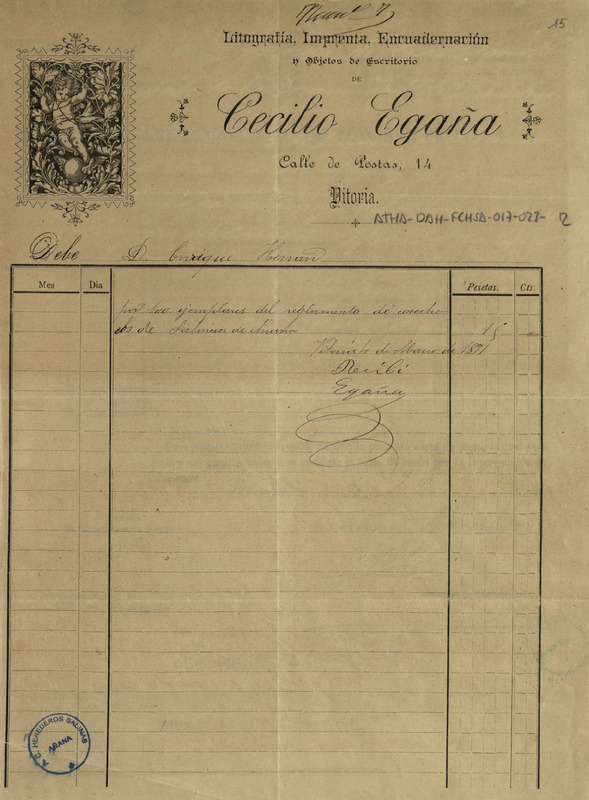 15
Litografía, Imprenta, Encuadernación
y Objetos de Escritorio
DE
Cecilio Egaña
Calle de Postas, 14
Vitoria.
ATHA-DAH-FCHSA-017-027-12
Debe D. Enrique Herrán
Mes Dia Pesetas. Cts.
por 100 ejemplares del reglamento de coseche-
ros de Salinas de Añana 15
Vitoria de Marzo de 1891
Recibí
Egaña
A. C. HEREDEROS SALINAS
AÑANA